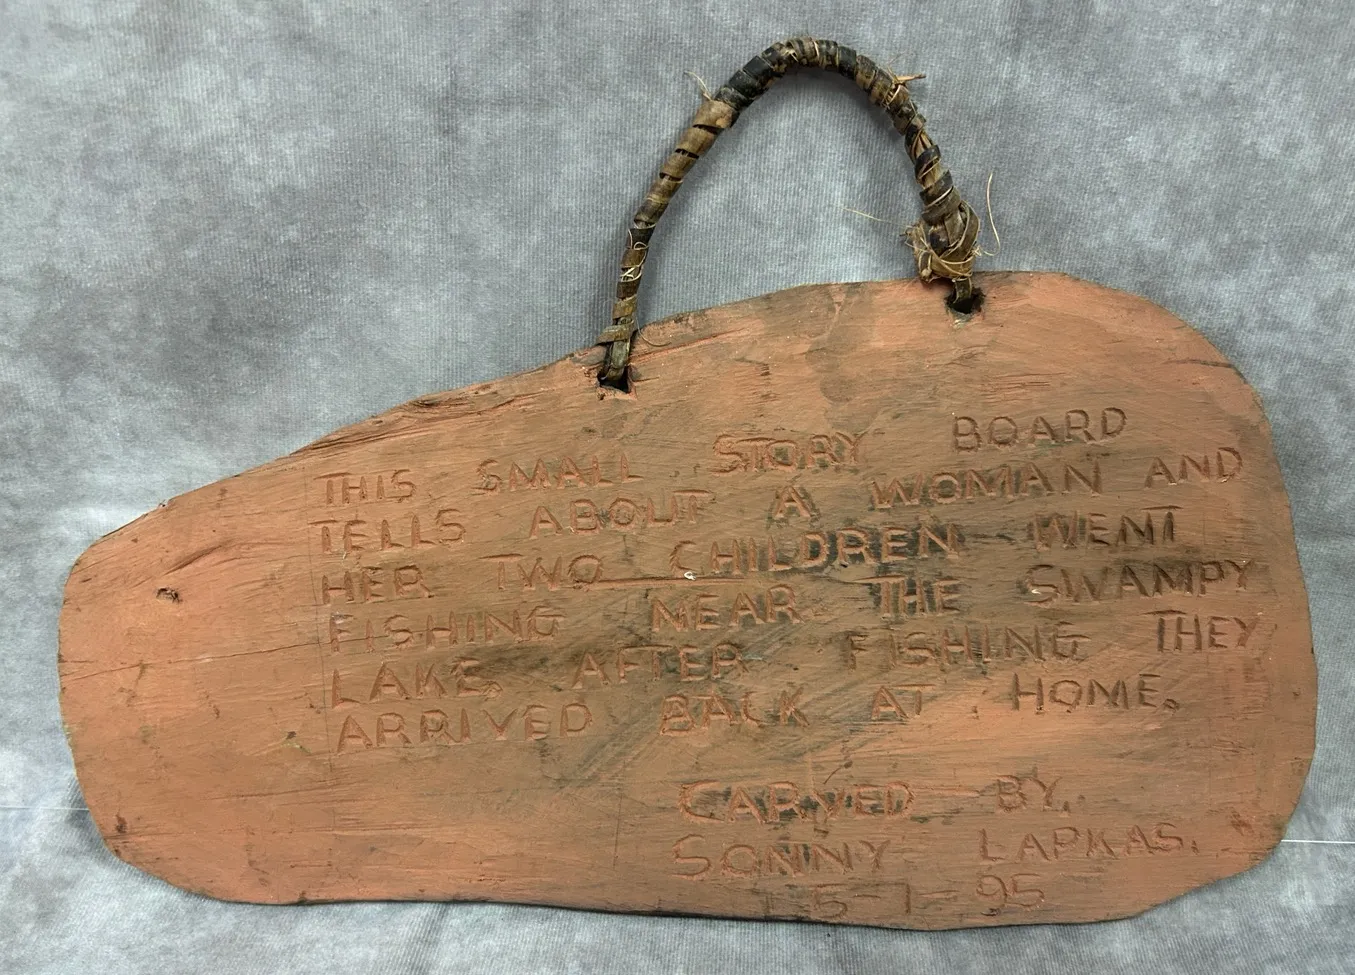 THIS SMALL STORY BOARD
TELLS ABOUT A WOMAN AND
HER TWO CHILDREN WENT
FISHING NEAR THE SWAMPY
LAKE, AFTER FISHING THEY
ARRIVED BACK AT HOME.
CARVED BY.
SONNY LAPKAS.
5-7-95